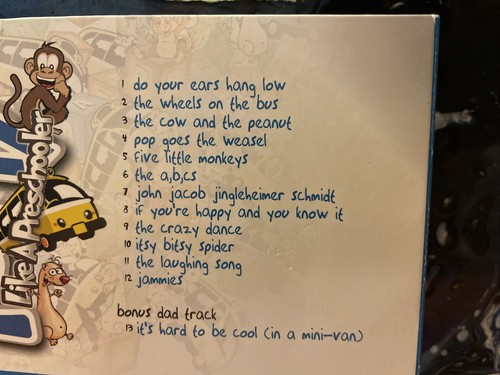 1 do your ears hang low
2 the wheels on the bus
3 the cow and the peanut
4 pop goes the weasel
5 five little monkeys
6 the a,b,cs
7 john jacob jingleheimer schmidt
8 if you're happy and you know it
9 the crazy dance
10 itsy bitsy spider
11 the laughing song
12 jammies
bonus dad track
13 it's hard to be cool (in a mini-van)
Like A Preschooler